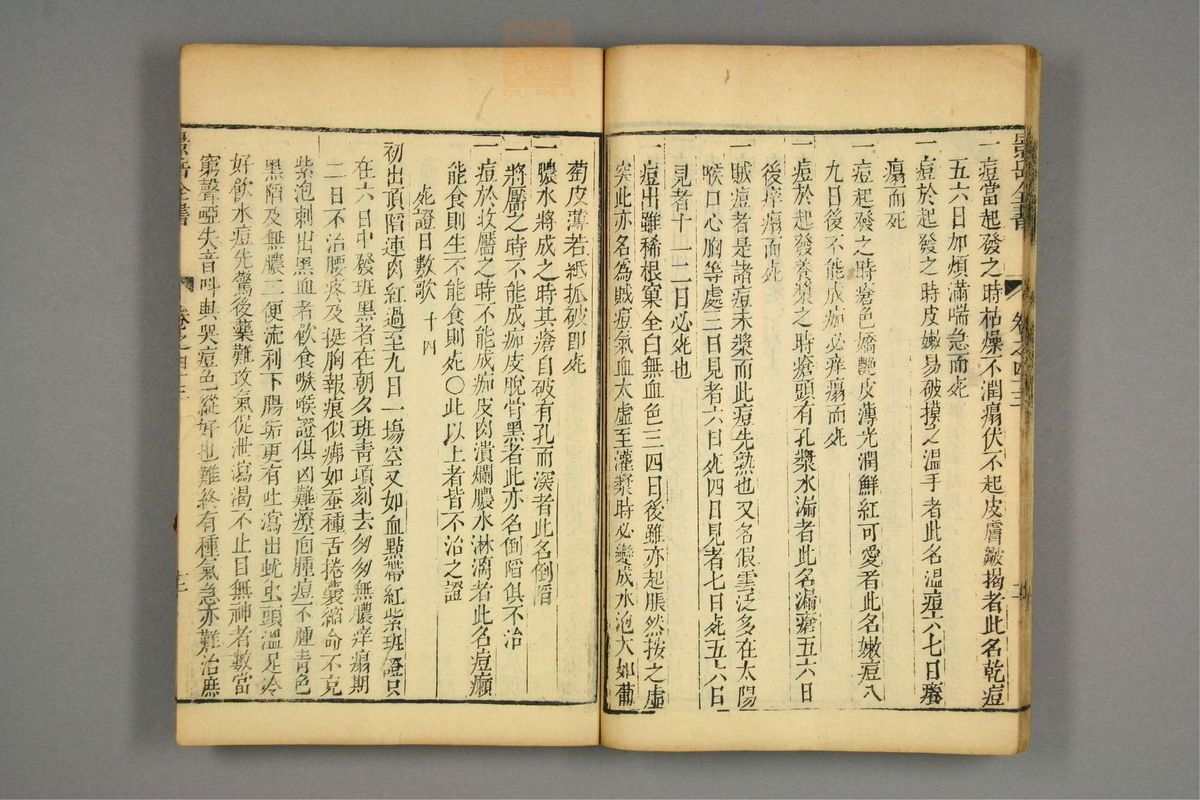 景岳全書 卷之四十三
一痘當起發之時枯燥不潤塌伏不起皮膚皺揭者此名乾痘
五六日加煩滿喘急而死
一痘於起發之時皮嫩易破摸之溫手者此名溫痘六七日癢
塌而死
一痘起發之時瘡色嬌艷皮薄光潤鮮紅可愛者此名嫩痘八
九日後不能成痂必痒塌而死
一痘於起發養漿之時瘡頭有孔漿水漏者此名漏瘡五六日
後痒塌而死
一賊痘者是諸痘未漿而此痘先熟也又名假雲泛多在太陽
喉口心胸等處三日見者六日死四日見者七日死五六日
見者十一二日必死也
一痘出雖稀根窠全白無血色三四日後雖亦起脹然按之虛
突此亦名為賊痘氣血太虛至灌漿時必變成水泡大如葡
萄皮薄若紙抓破即死
一膿水將成之時其瘡自破有孔而深者此名倒陷
一將靨之時不能成痂皮脫骨黑者此亦名倒陷俱不治
一痘於收靨之時不能成痂皮肉潰爛膿水淋漓者此名痘癩
能食則生不能食則死○此以上者皆不治之證
死證日數歌 十四
初出頂陷連肉紅過至九日一塲空又如血點帶紅紫班證只
在六日中發班黑者在朝夕班青頃刻去匆匆無膿痒塌期
二日不治腰疼及挺胸報痕似痱如蚕種舌捲囊縮命不克
紫泡刺出黑血者飲食嗽喉證俱凶難療面腫痘不腫青色
黑陷及無膿二便流利下腸垢更有吐瀉出蚘虫頭溫足冷
好飲水痘先驚後藥難攻氣促泄瀉渴不止目無神者數當
窮聲啞失音呌與哭痘色縱好也難終有種氣急亦難治庶
景岳全書 卷之四十三